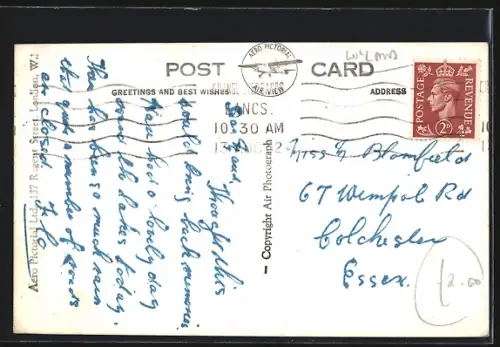 POST CARD
AERO PICTORIAL
AIR VIEW
GREETINGS AND BEST WISHES
ADDRESS
LANCS.
10.30 AM
POSTAGE REVENUE
2D
Aero Pictorial Ltd., 137 Regent Street, London, W.1
— Copyright Air Photograph —
Thought this
would bring back memories
Have had a lovely day
round the Lakes today.
There has been so much rain
that quite a number of roads
are closed.
Miss M Blomfield
67 Wimpole Rd
Colchester
Essex.
£2.00